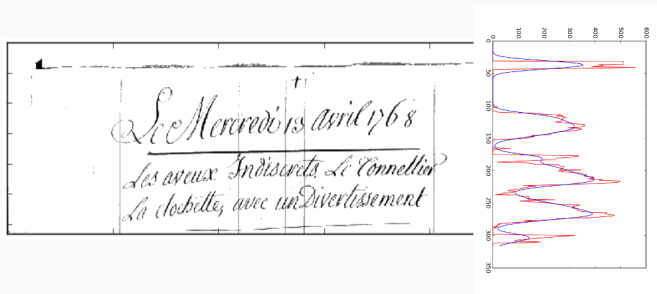 Le Mercredi 13 avril 1768
Les aveux Indiscrets, Le Tonnellier
La clochette, avec un Divertissement
0 100 200 300 400 500 600
0
50
100
150
200
250
300
350